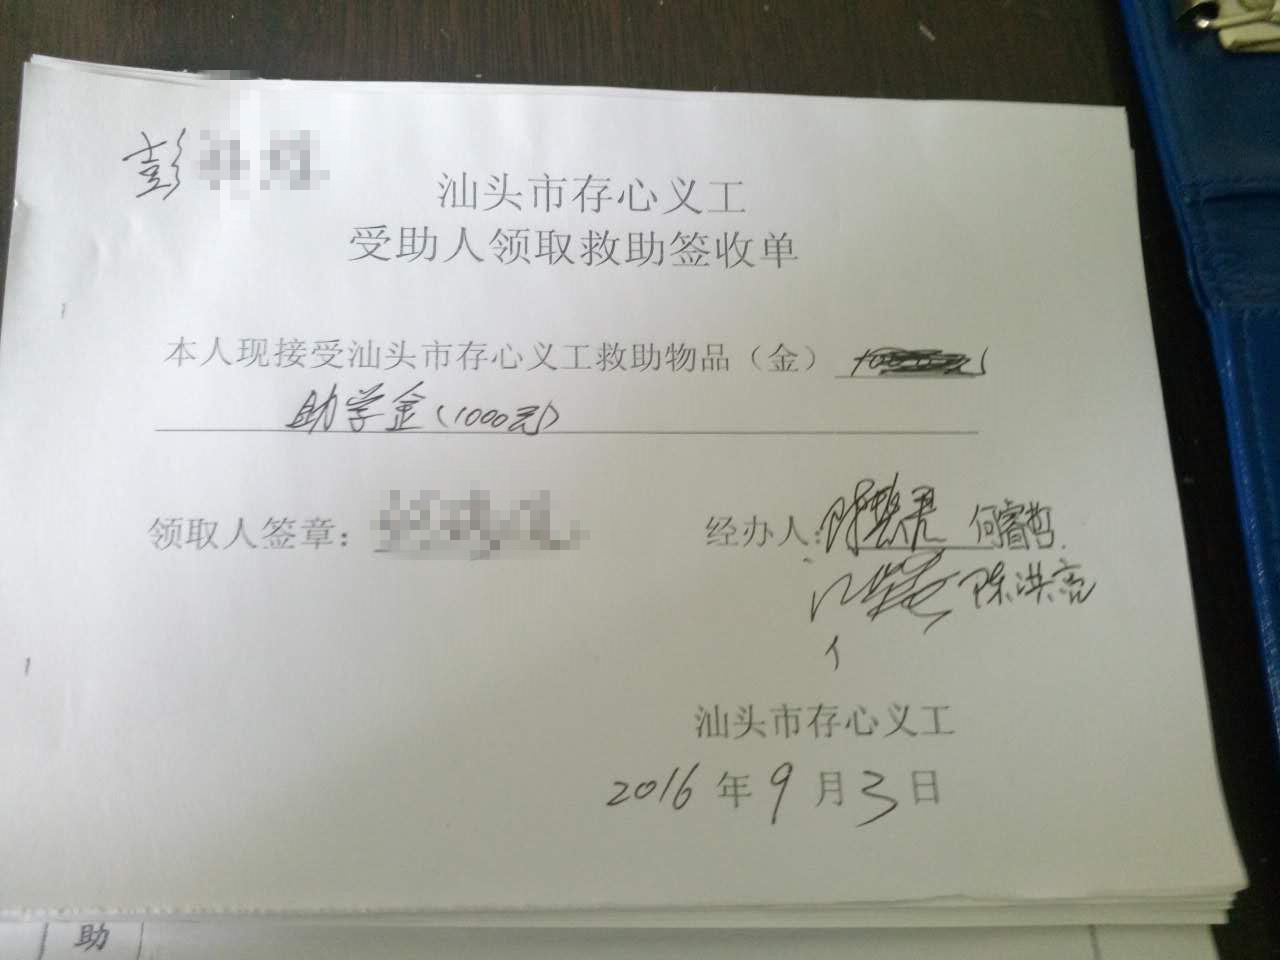 彭
汕头市存心义工
受助人领取救助签收单
本人现接受汕头市存心义工救助物品（金）
助学金(1000元)
领取人签章：
经办人: 何睿哲
陈洪亮
汕头市存心义工
2016年9月3日
助